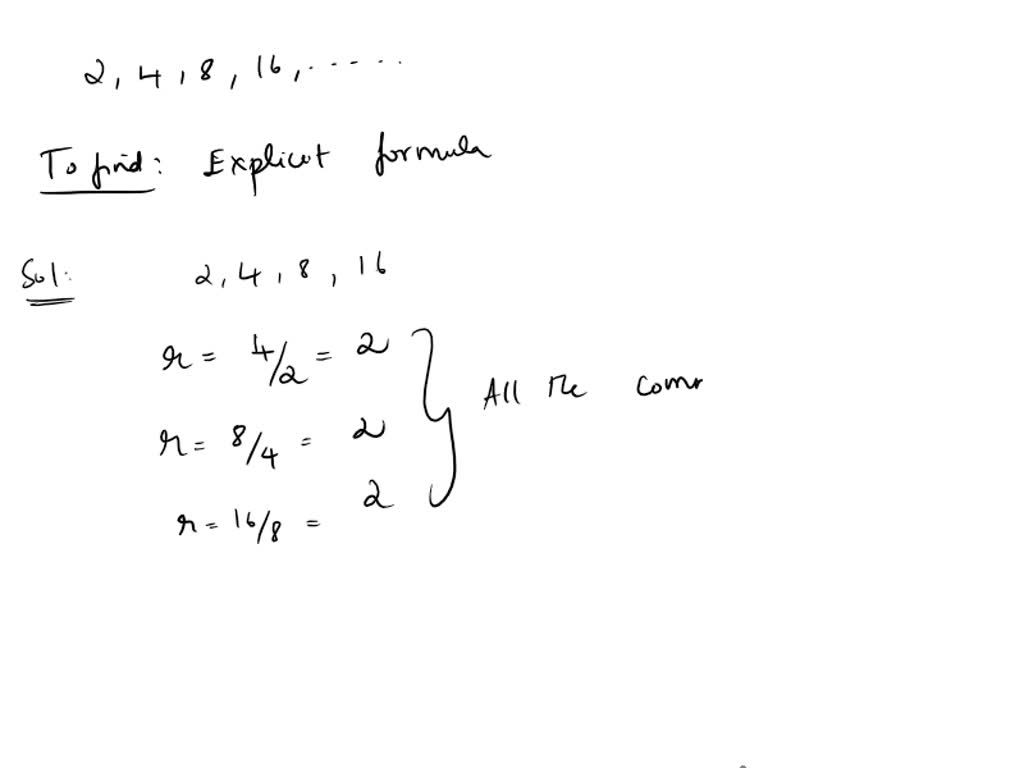 2, 4, 8, 16, ......
To find: Explicit formula
Sol: 2, 4, 8, 16
r = 4/2 = 2
r = 8/4 = 2
All the comm
r = 16/8 = 2